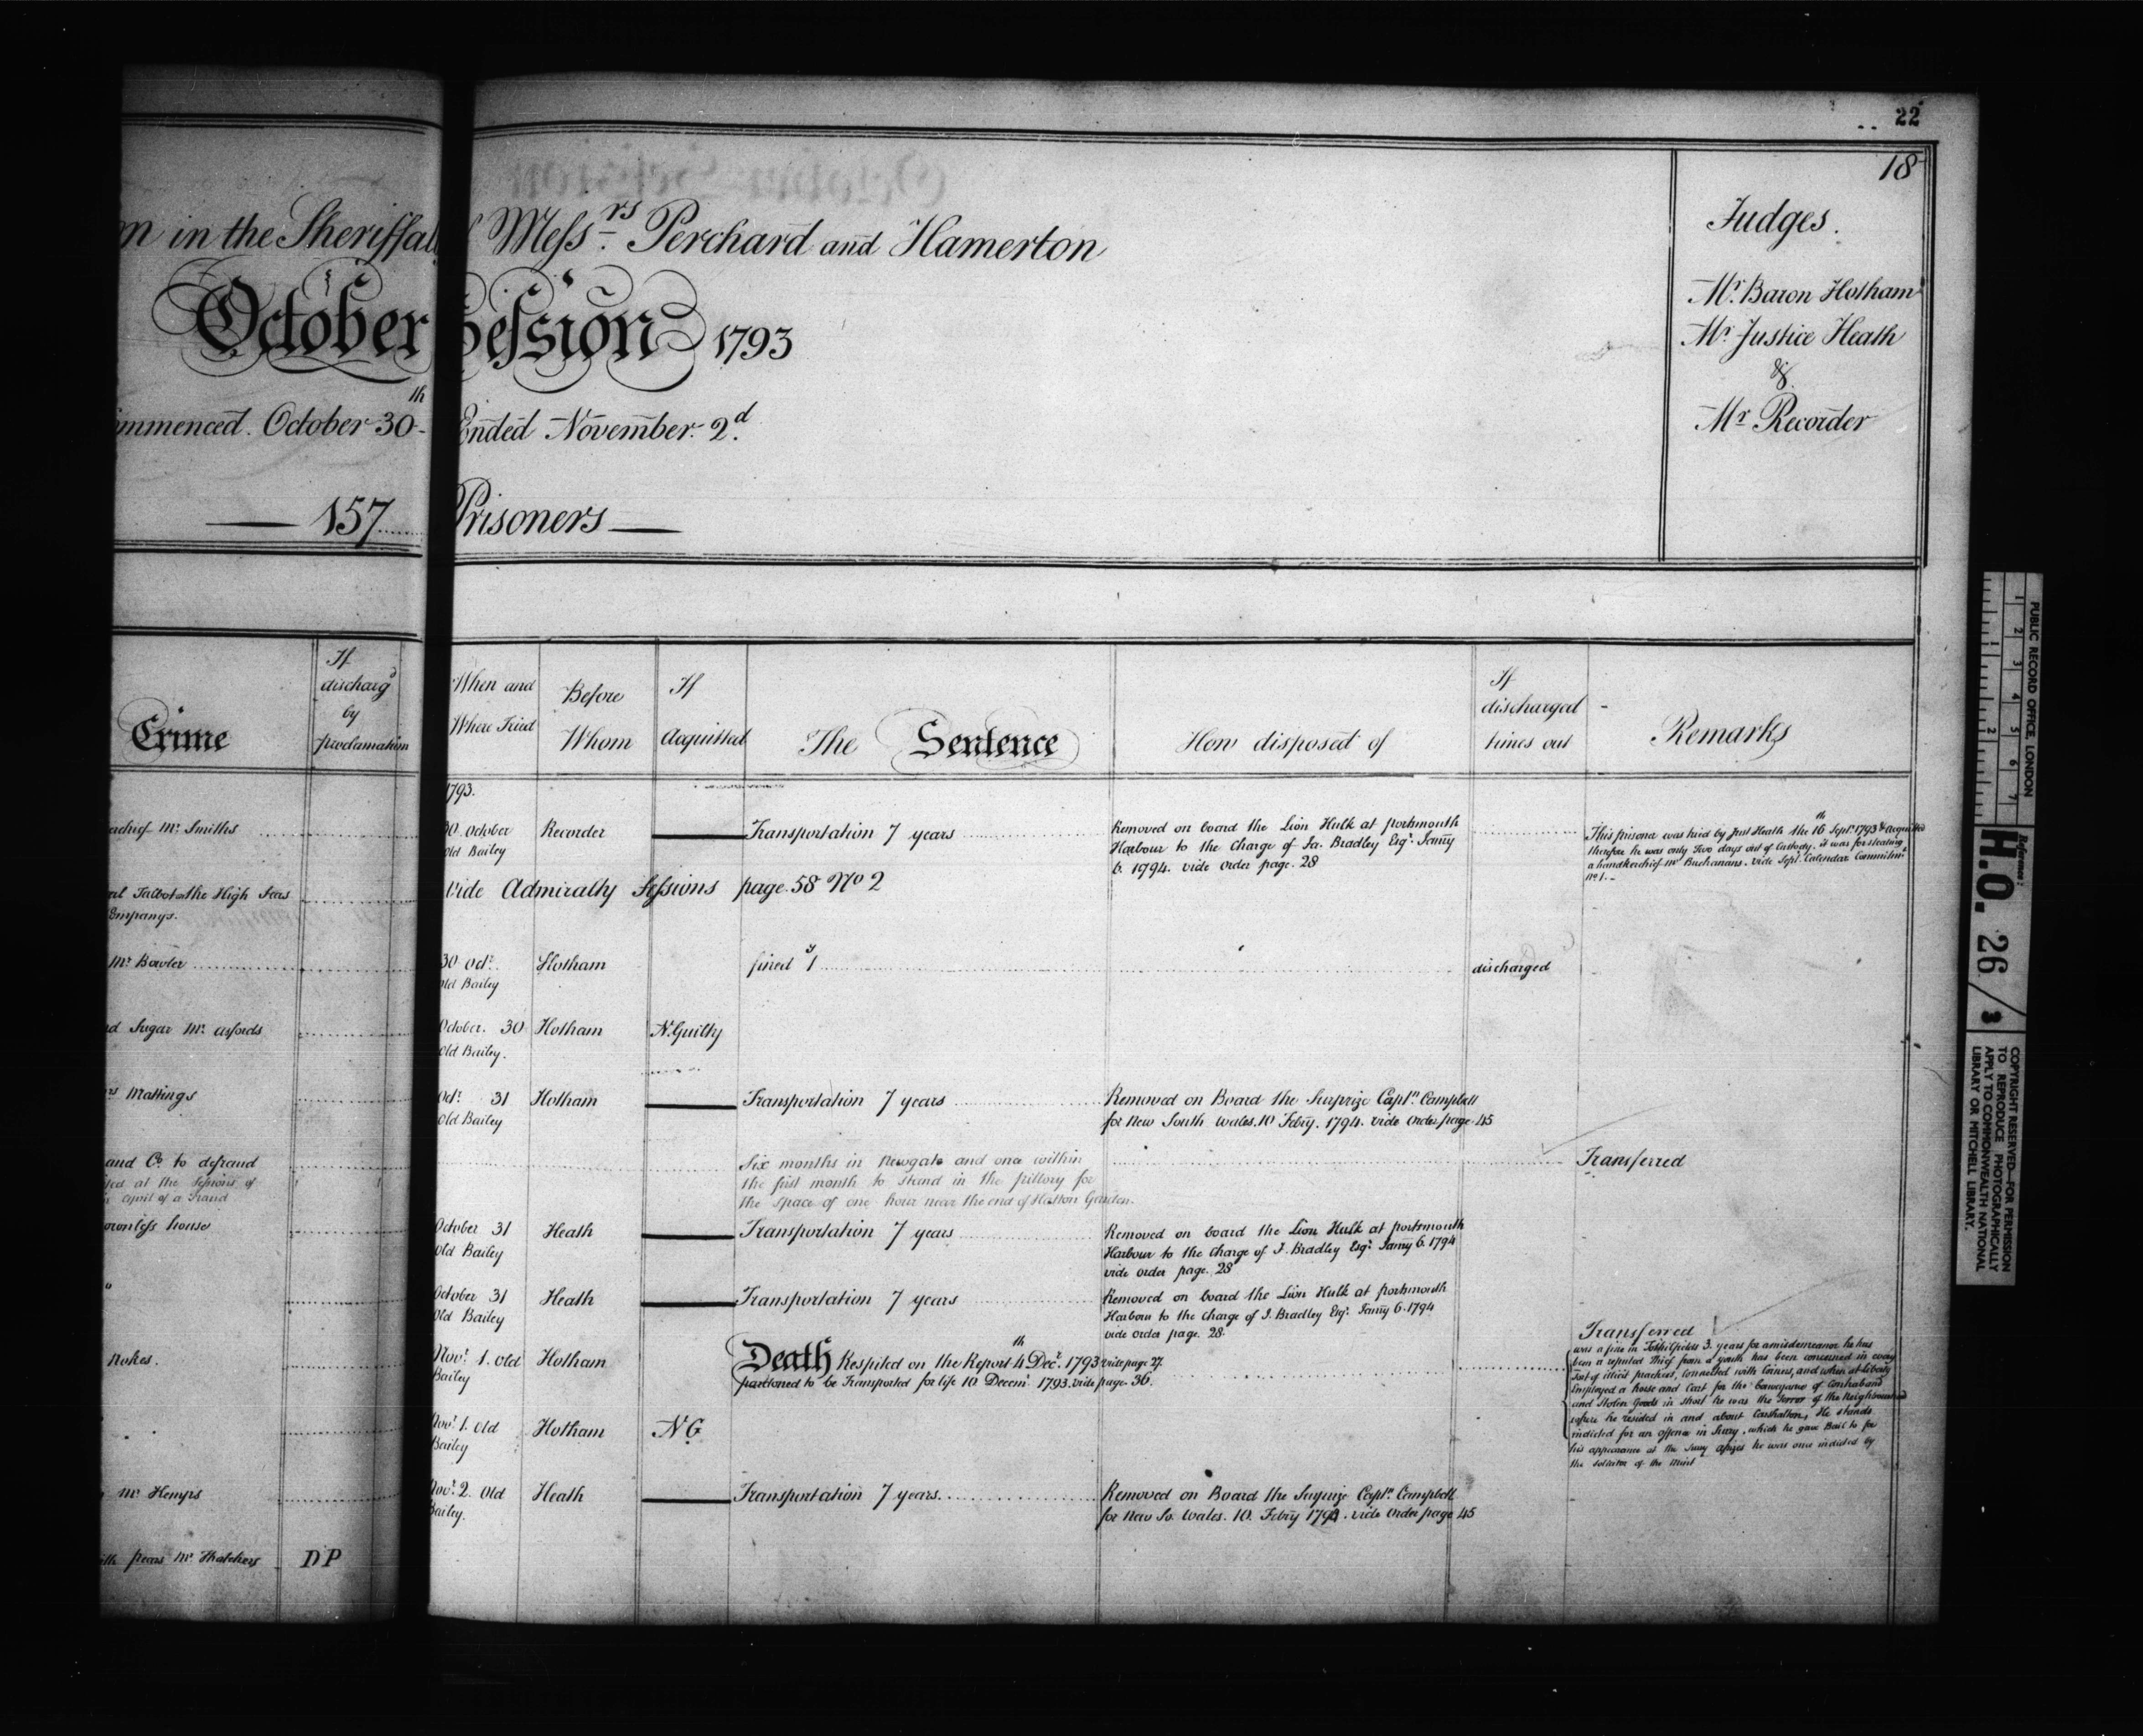 22
18
in the Sheriffal
Messrs. Perchard and Hamerton
October Session 1793
mmenced. October 30th
Ended November. 2d.
157 Prisoners
Judges.
Mr. Baron Hotham
Mr. Justice Heath
&
Mr Recorder
Crime
If
discharg'd
by
proclamation
When and
Where Tried
Before
Whom
If
Acquitted
The Sentence
How disposed of
If
discharged
times out
Remarks
1793.
chief Mr. Smiths
30 October
Old Bailey
Recorder
Transportation 7 years
Removed on board the Lion Hulk at portsmouth
Harbour to the Charge of Ja. Bradley Esqr. Jany
6. 1794. vide order page. 28
This prisoner was tried by Just Heath the 16th Septr. 1793 & acquitted
therefore he was only Two days out of Custody. it was for stealing
a handkerchief Mr Buchanans. vide Sept. Calendar Commitmt
No 1.
Talbot on the High Seas
Companys.
Vide Admiralty Sessions page. 58 No 2
Mr. Bowler
30 Octr.
Old Bailey
Hotham
fined 1s
discharged
Sugar Mr.
October. 30
Old Bailey.
Hotham
N. Guilty
Mattings
Octr. 31
Old Bailey
Hotham
Transportation 7 years
Removed on Board the Surprize Captn. Campbell
for New South Wales. 10 Febry. 1794. vide Order page. 45
and Co. to defraud
at the Sessions of
April of a Fraud
Six months in Newgate and once within
the first month to stand in the pillory for
the space of one hour near the end of Hatton Garden.
Transferred
house
October 31
Old Bailey
Heath
Transportation 7 years
Removed on board the Lion Hulk at portsmouth
Harbour to the Charge of J. Bradley Esqr. Jany 6. 1794
vide order page. 28
October 31
Old Bailey
Heath
Transportation 7 years
Removed on board the Lion Hulk at portsmouth
Harbour to the Charge of J. Bradley Esqr. Jany 6. 1794
vide order page. 28.
Nokes.
Novr. 1. Old
Bailey
Hotham
Death Respited on the Report 4th Decr. 1793 vide page 27.
pardoned to be Transported for life 10 Decemr. 1793. vide page. 36.
Transferred
was a fine in Tothilfields 3. years for a misdemeanor he has
been a reputed Thief from a youth has been concerned in every
sort of illicit practices, connected with Coiners, and when at liberty
Employed a horse and Cart for the Conveyance of Contraband
and Stolen Goods in short he was the Terror of the Neighbourhood
where he resided in and about Carshalton, He stands
indicted for an offence in Surry, which he gave Bail to for
his appearance at the Surry Assizes he was once indicted by
the Solicitor of the Mint
Novr. 1. Old
Bailey
Hotham
N G
Mr Kemps
Novr. 2. Old
Bailey.
Heath
Transportation 7 years.
Removed on Board the Surprize Captn. Campbell
for New So. Wales. 10. Febry 1794. vide Order page 45
pears Mr. Thatchers
D P
PUBLIC RECORD OFFICE, LONDON
1 2 3 4 5 6 7
1 2
Reference:
H.O. 26/3
COPYRIGHT RESERVED—FOR PERMISSION
TO REPRODUCE PHOTOGRAPHICALLY
APPLY TO COMMONWEALTH NATIONAL
LIBRARY OR MITCHELL LIBRARY.